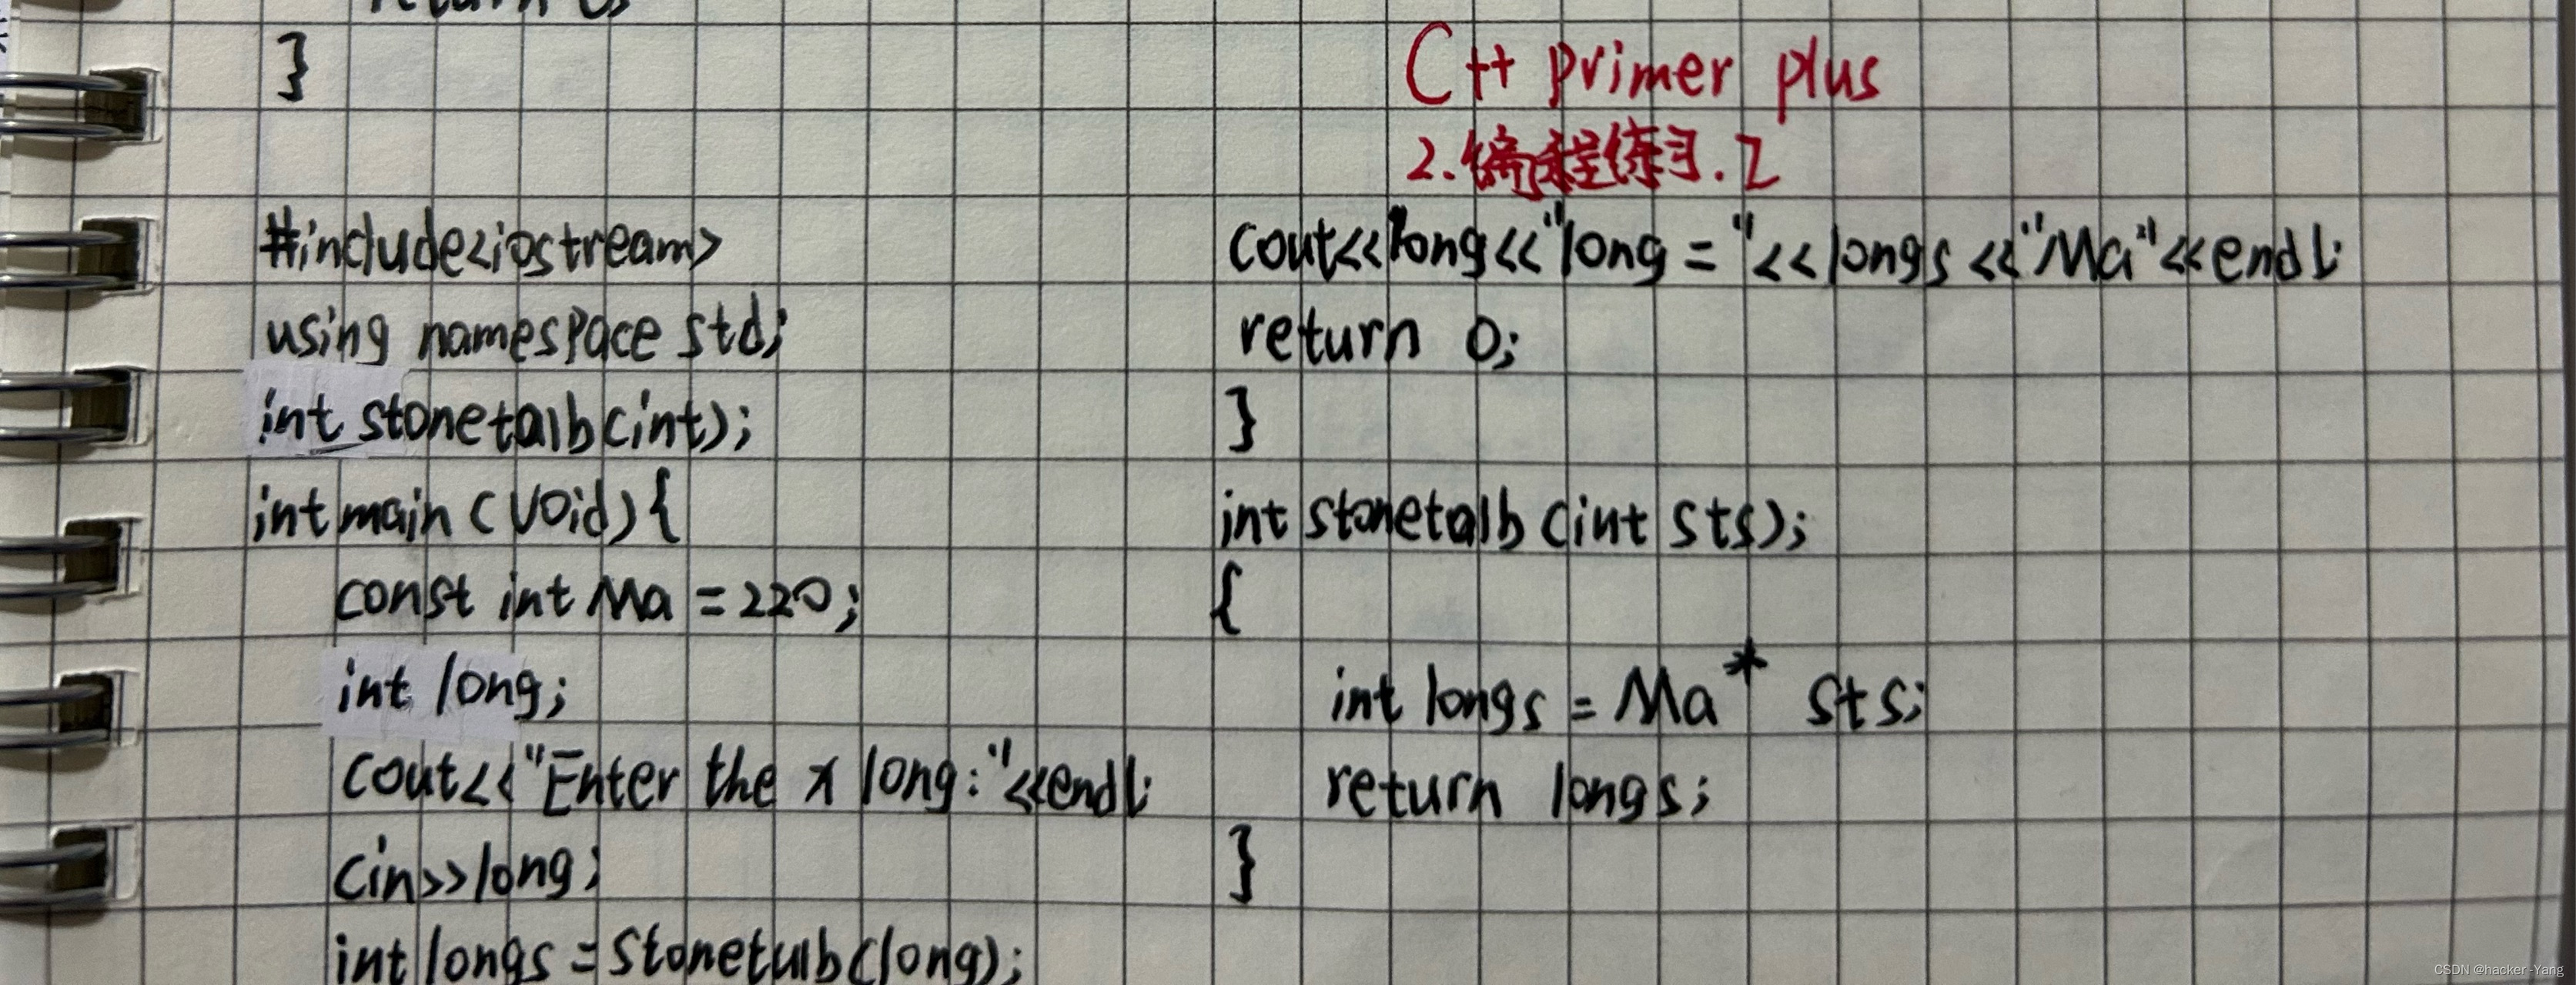 return
}
#include<iostream>
using namespace std;
int stonetalb(int);
int main (void){
const int Ma = 220;
int long;
cout<<"Enter the x long:"<<endl;
cin>>long;
int longs = stonetalb(long);
C++ primer plus
2.编程练习.2
cout<<long<<"long = "<<longs<<"Ma"<<endl;
return 0;
}
int stonetalb (int sts);
{
int longs = Ma* sts;
return longs;
}
CSDN @hacker-Yang